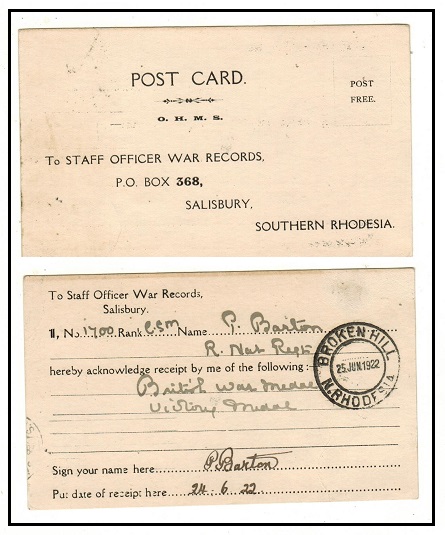 POST CARD.
O. H. M. S.
POST
FREE.
To STAFF OFFICER WAR RECORDS,
P.O. BOX 368,
SALISBURY,
SOUTHERN RHODESIA.
To Staff Officer War Records,
Salisbury.
I, No 1700 Rank CSM Name P. Barton
R. Nat Regt
hereby acknowledge receipt by me of the following:—
British War Medal
Victory Medal
BROKEN HILL
25 JUN 1922
N. RHODESIA
Sign your name here P Barton
Put date of receipt here 24. 6. 22.